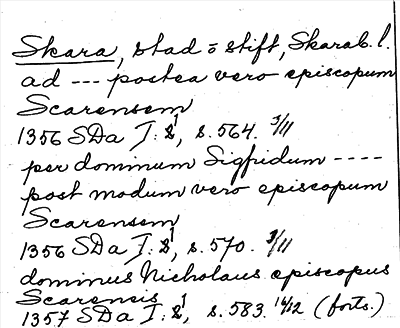 Skara, stad o stift, Skarab. l.
ad --- postea vero episcopum
Scarensem
1356 SDa I: 1, s. 564. 3/11
per dominum Sigfridum ----
post modum vero episcopum
Scarensem
1356 SDa I: 1, s. 570. 3/11
dominus Nicholaus episcopus
Scarensis
1357 SDa I: 1, s. 583. 14/12 (forts.)